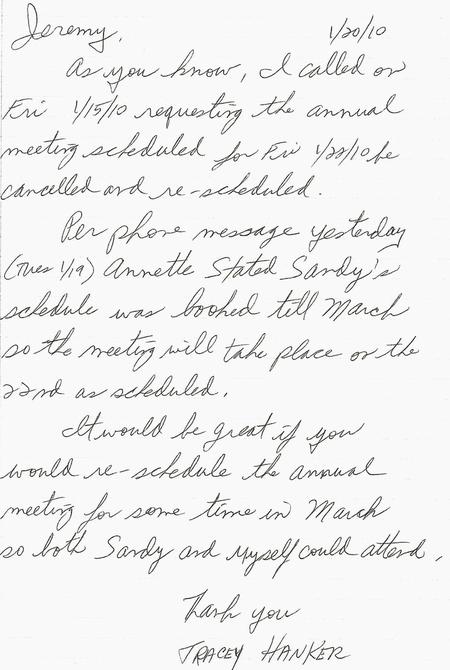 Jeremy, 1/20/10
As you know, I called on
Fri 1/15/10 requesting the annual
meeting scheduled for Fri 1/22/10 be
cancelled and re-scheduled.
Per phone message yesterday
(Tues 1/19) Annette Stated Sandy's
schedule was booked till March
so the meeting will take place on the
22nd as scheduled.
It would be great if you
would re-schedule the annual
meeting for some time in March
so both Sandy and myself could attend.
Thank you
TRACEY HANKER